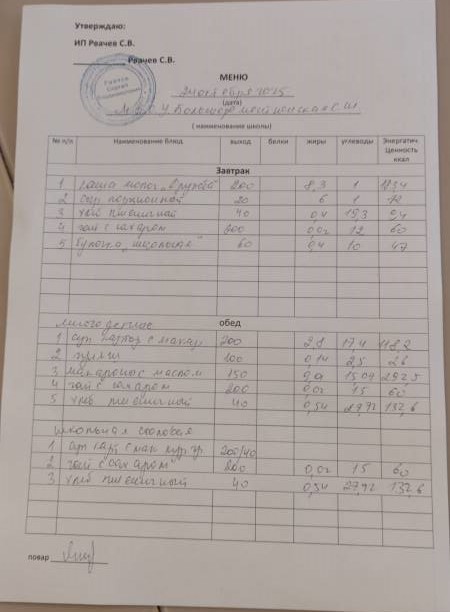 Утверждаю:
ИП Рвачев С.В.
Рвачев С.В.
МЕНЮ
октября 2025
(дата)
( наименование школы)
№ п/п Наименование блюд выход белки жиры углеводы Энергатич. Ценность ккал
Завтрак
1 каша молоч. "Дружба" 200 8,3 1
2 сыр порционный 20 6 1
3 хлеб пшеничный 40 0,4 19,3 94
4 чай с сахаром 200 0,02 12 60
5 Булочка "школьная" 60 0,4 10 47
многодетные обед
1 суп с макар 200 2,8 17,4 118,2
2 100 0,14 2,5 26
3 макароны с маслом 150 15,09
4 чай с сахаром 200 0,02 15 60
5 хлеб пшеничный 40 0,54 27,92 132,6
школьная столовая
1 суп с мак. кур. гр. 200/40
2 чай с сахаром 200 0,02 15 60
3 хлеб пшеничный 40 0,54 27,92 132,6
повар